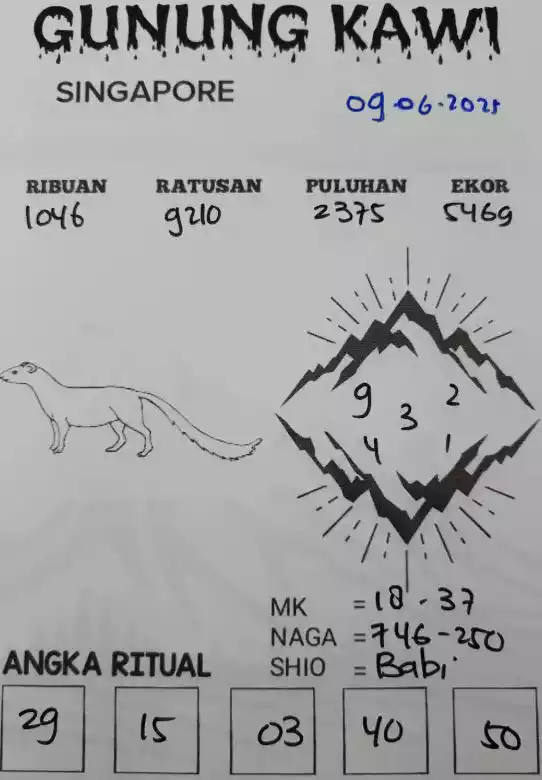 GUNUNG KAWI
SINGAPORE
09.06.2025
RIBUAN RATUSAN PULUHAN EKOR
1046 9210 2375 5469
9 2
3
4 1
MK = 18 - 37
NAGA = 746-250
SHIO = Babi
ANGKA RITUAL
29 15 03 40 50